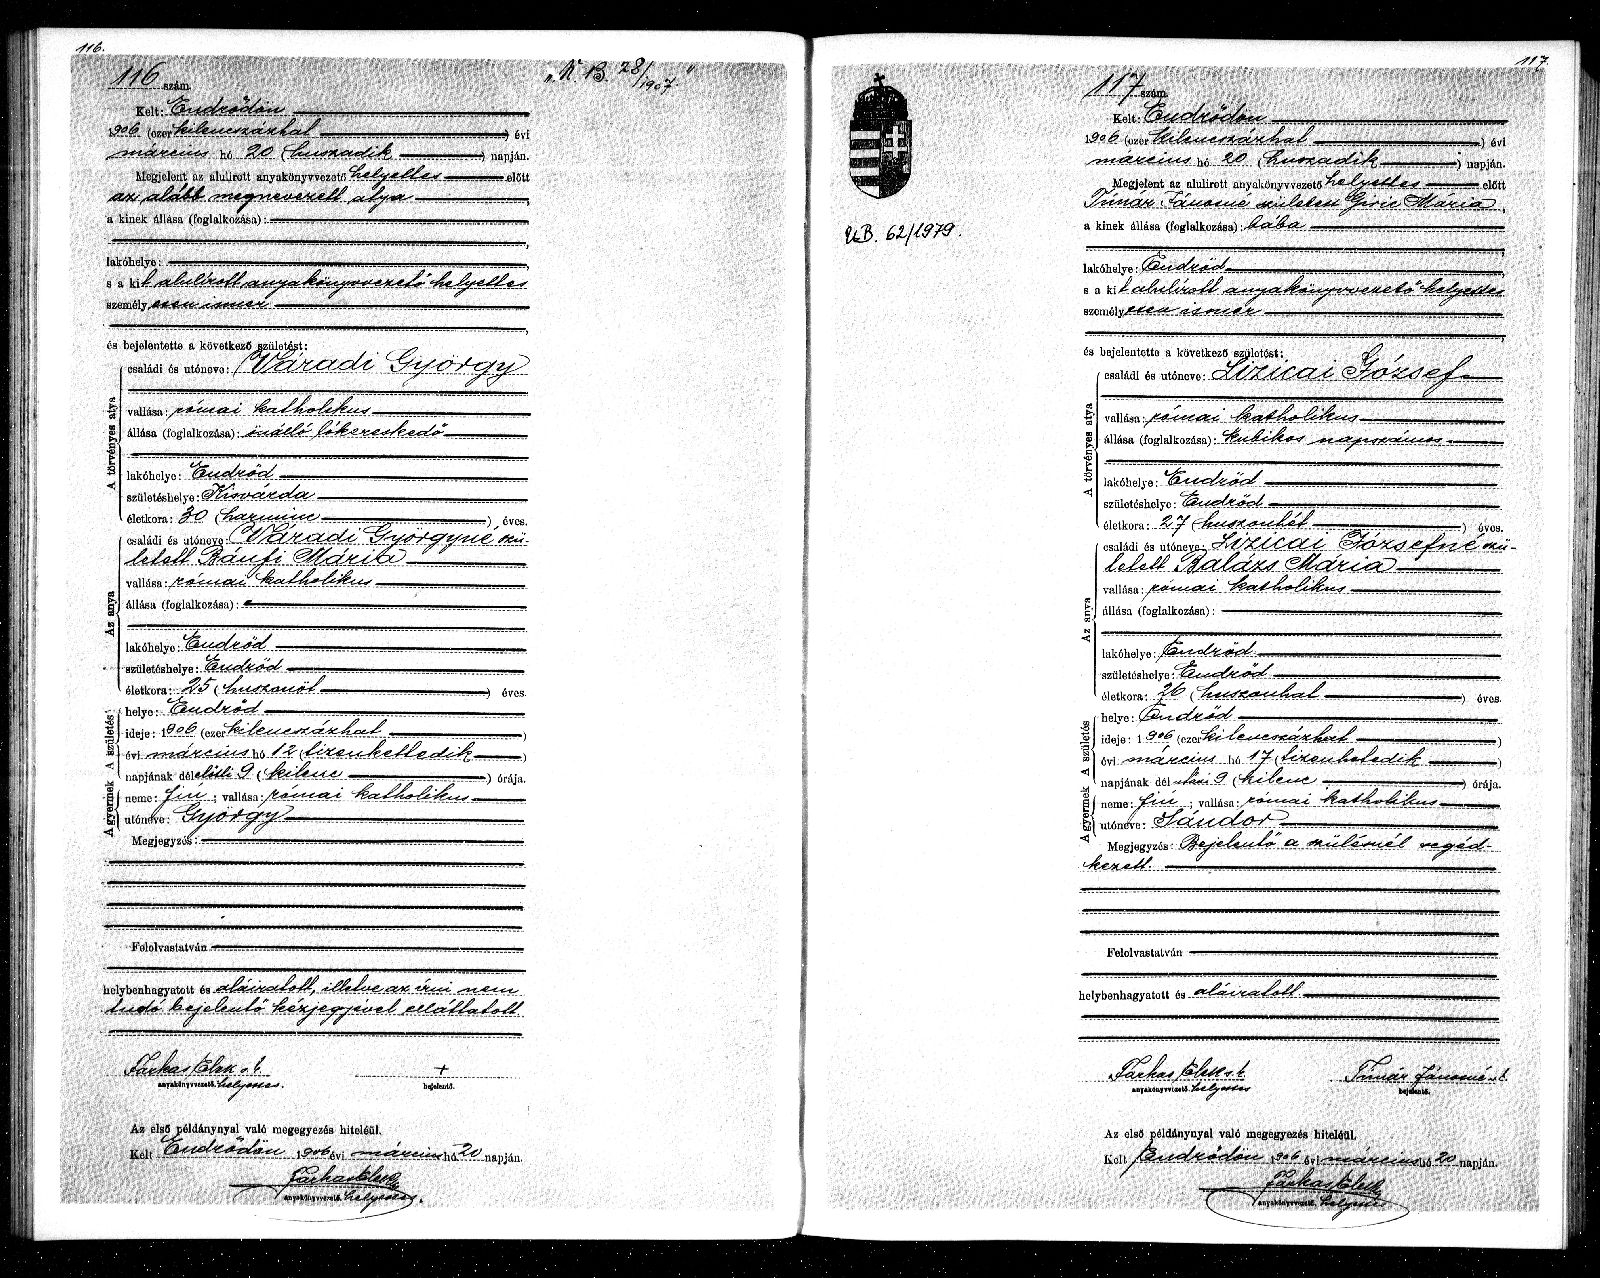 116.
116 szám.
„K B. 28/1907."
Kelt: Endrődön
1906 (ezer kilenczszázhat) évi
március hó 20 (huszadik) napján.
Megjelent az alulirott anyakönyvvezető helyettes előtt
az alább megnevezett atya
a kinek állása (foglalkozása):
lakóhelye:
s a kit alulírott anyakönyvvezető helyettes
személyesen ismer
és bejelentette a következő születést:
A törvényes atya
családi és utóneve: Váradi György
vallása: római katholikus
állása (foglalkozása): önálló lókereskedő
lakóhelye: Endrőd
születéshelye: Kisvárda
életkora: 30 (harminc) éves.
Az anya
családi és utóneve: Váradi Györgyné szü-
letett Bánfi Mária
vallása: római katholikus
állása (foglalkozása):
lakóhelye: Endrőd
születéshelye: Endrőd
életkora: 25 (huszonöt) éves.
A gyermek A születés
helye: Endrőd
ideje: 1906 (ezer kilenczszázhat)
évi március hó 12 (tizenkettedik)
napjának délelőtti 9 (kilenc) órája.
neme: fiú; vallása: római katholikus
utóneve: György
Megjegyzés:
Felolvastatván
helybenhagyatott és aláiratott, illetve az írni nem
tudó bejelentő kézjegyével elláttatott
Farkas Elek s. k. +
anyakönyvvezető helyettes. bejelentő.
Az első példánynyal való megegyezés hiteléül.
Kelt Endrődön 1906 évi március hó 20 napján.
Farkas Elek
anyakönyvvezető helyettes.
117.
117 szám.
UB. 62/1979.
Kelt: Endrődön
1906 (ezer kilenczszázhat) évi
március hó 20 (huszadik) napján.
Megjelent az alulirott anyakönyvvezető helyettes előtt
Tímár Jánosné született Giric Mária,
a kinek állása (foglalkozása): bába
lakóhelye: Endrőd
s a kit alulírott anyakönyvvezető helyettes
személyesen ismer
és bejelentette a következő születést:
A törvényes atya
családi és utóneve: Lizicai József
vallása: római katholikus
állása (foglalkozása): kubikos napszámos
lakóhelye: Endrőd
születéshelye: Endrőd
életkora: 27 (huszonhét) éves.
Az anya
családi és utóneve: Lizicai Józsefné szü-
letett Balázs Mária
vallása: római katholikus
állása (foglalkozása):
lakóhelye: Endrőd
születéshelye: Endrőd
életkora: 26 (huszonhat) éves.
A gyermek A születés
helye: Endrőd
ideje: 1906 (ezer kilenczszázhat)
évi március hó 17 (tizenhetedik)
napjának dél utáni 9 (kilenc) órája.
neme: fiú; vallása: római katholikus
utóneve: Sándor
Megjegyzés: Bejelentő a szülésnél segéd-
kezett.
Felolvastatván
helybenhagyatott és aláiratott
Farkas Elek s. k. Tímár Jánosné s. k.
anyakönyvvezető helyettes bejelentő.
Az első példánynyal való megegyezés hiteléül.
Kelt Endrődön 1906 évi március hó 20 napján.
Farkas Elek
anyakönyvvezető helyettes